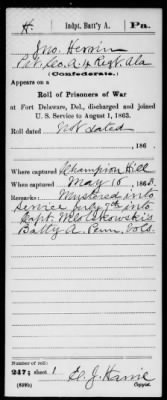 H. Indpt. Batt'y A. Pa.
Jno. Herrin
Pvt. Co. A. 4 Regt. Ala
(Confederate.)
Appears on a
Roll of Prisoners of War
at Fort Delaware, Del., discharged and joined
U. S. Service to August 1, 1863.
Roll dated
Not dated, 186 .
Where captured Champion Hill
When captured May 16, 1863.
Remarks: Mustered into
service July 9th into
Capt. Mlotkowski's
Batty A. Penn. Vols
Number of roll:
247; sheet 1
(639b) Copyist.